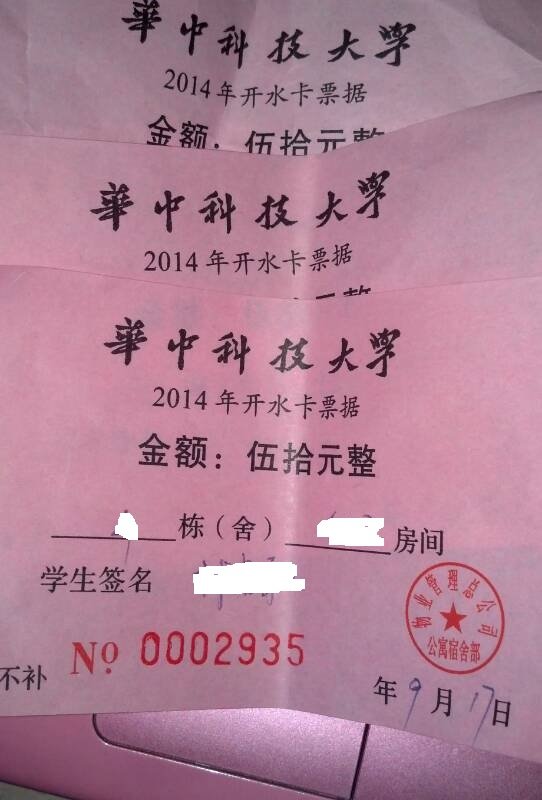 華中科技大学
2014年开水卡票据
金额：伍拾元整
華中科技大学
2014年开水卡票据
元整
華中科技大学
2014年开水卡票据
金额：伍拾元整
栋（舍） 房间
学生签名
物业管理总公司
公寓宿舍部
不补 Nº 0002935
年9月17日